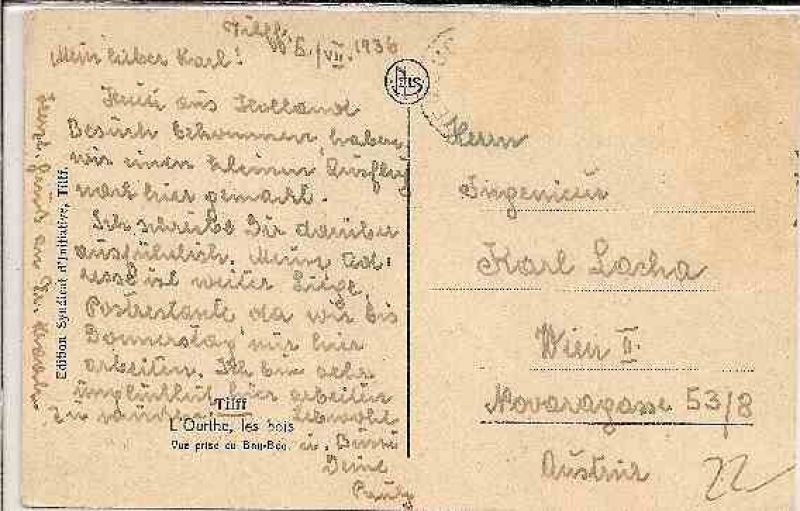 Tilff, 5./VII. 1936
Mein lieber Karl!
Heute aus Holland
Besuch bekommen, haben
wir einen kleinen Ausflug
nach hier gemacht.
Ich schreibe Dir darüber
ausführlich. Meine Ad-
resse ist weiter Liége,
Postrestante da wir bis
Donnerstag nur hier
arbeiten. Ich bin sehr
unglücklich hier arbeiten
zu
Lebwohl
u. Bussi
Deine
Pauly
Edition Syndicat d'Initiative, Tilff.
Tilff
L'Ourthe, les bois
Vue prise du Bau-Bau.
NELS
Herrn
Ingenieur
Karl Lacha
Wien II.
Novaragasse 53/8
Austria
22